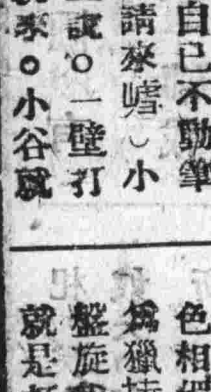 自己不動筆
請來嘘）小
說○一壁打
來○小谷就
色相
爲獵
盤旋
就是